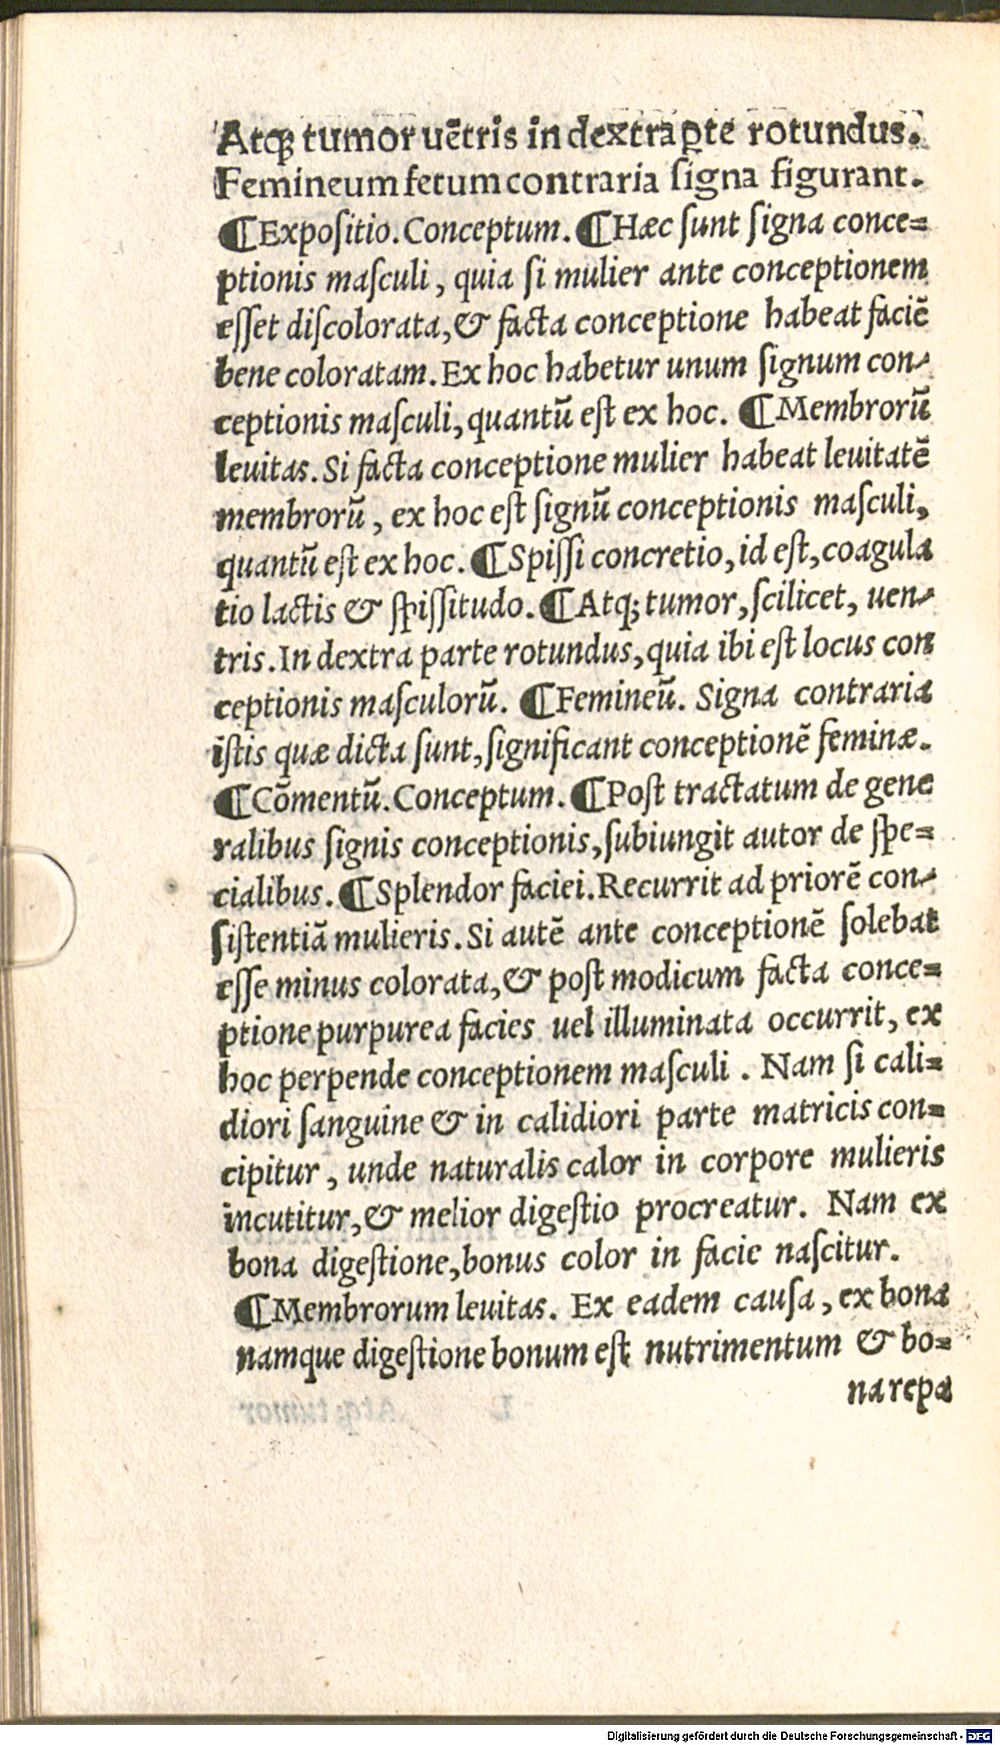 Atq; tumor uẽtris in dextra ꝑte rotundus.
Femineum fetum contraria ſigna figurant.
¶Expoſitio. Conceptum. ¶Hæc ſunt ſigna conce=
ptionis maſculi, quia ſi mulier ante conceptionem
eſſet diſcolorata, & facta conceptione habeat faciẽ
bene coloratam. Ex hoc habetur unum ſignum con-
ceptionis maſculi, quantũ eſt ex hoc. ¶Membrorũ
leuitas. Si facta conceptione mulier habeat leuitatẽ
membrorũ, ex hoc eſt ſignũ conceptionis maſculi,
quantũ eſt ex hoc. ¶Spiſſi concretio, id eſt, coagula
tio lactis & ſpiſſitudo. ¶Atq; tumor, ſcilicet, uen-
tris. In dextra parte rotundus, quia ibi eſt locus con
ceptionis maſculorũ. ¶Femineũ. Signa contraria
iſtis quæ dicta ſunt, ſignificant conceptionẽ feminæ.
¶Cõmentũ. Conceptum. ¶Poſt tractatum de gene
ralibus ſignis conceptionis, ſubiungit autor de ſpe=
cialibus. ¶Splendor faciei. Recurrit ad priorẽ con-
ſiſtentiã mulieris. Si autẽ ante conceptionẽ ſolebat
eſſe minus colorata, & poſt modicum facta conce=
ptione purpurea facies uel illuminata occurrit, ex
hoc perpende conceptionem maſculi. Nam ſi cali=
diori ſanguine & in calidiori parte matricis con=
cipitur, unde naturalis calor in corpore mulieris
incutitur, & melior digeſtio procreatur. Nam ex
bona digeſtione, bonus color in facie naſcitur.
¶Membrorum leuitas. Ex eadem cauſa, ex bona
namque digeſtione bonum eſt nutrimentum & bo=
na repa
Digitalisierung gefördert durch die Deutsche Forschungsgemeinschaft - DFG